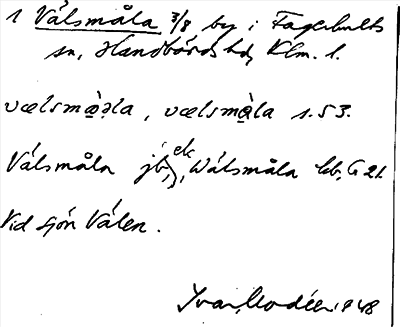 1 Välsmåla 3/8 by i Fagerhults
sn, Handbörds hd, Klm. l.
vælsmå̀ₔla, vælsmå̀la s. 53.
Välsmåla jb, ek, Wälsmåla kb, G 21.
Vid sjön Välen.
Ivar Modéer 1948